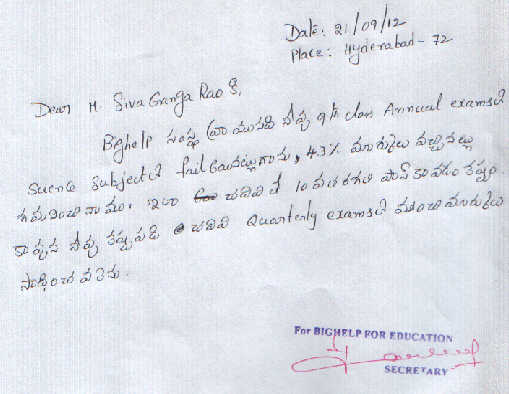 Date: 21/09/12
Place: Hyderabad - 72
Dear M. Siva Ganga Rao G,
Bighelp సంస్థ ద్వారా నీవు 9th class Annual examsలో
Science Subjectలో fail , 43% మార్కులు వచ్చినట్లు
గమనించినాము. ఇలా చదివితే 10వ తరగతి పాస్ కావడం కష్టం.
కావున నీవు కష్టపడి చదివి Quarterly examsలో మంచి మార్కులు
సాధించవలెను.
For BIGHELP FOR EDUCATION
SECRETARY